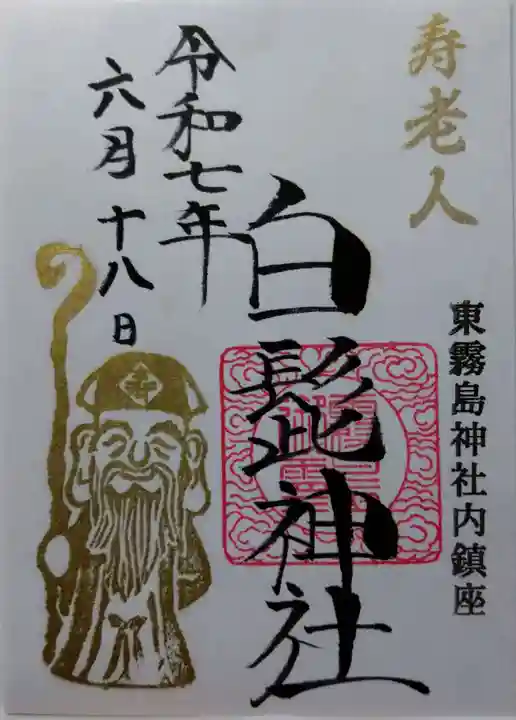 寿老人
東霧島神社内鎮座
白髭神社
令和七年
六月十八日
寿